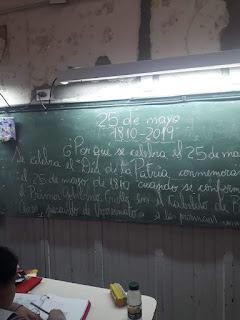 25 de mayo
1810-2019
¿Por qué se celebra el 25 de ma
Se celebra el "Día de la Patria, conmemora
el 25 de mayo de 1810 cuando se conform
el Primer gobierno en el Cabildo de B
a las provincias